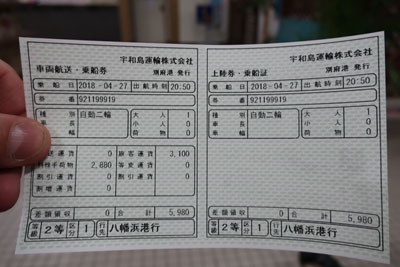 宇和島運輸株式会社
車両航送・乗船券 別府港 発行
乗船日 2018-04-27 出航時刻 20:50
券番 921199919
種別 自動二輪 大人 1
車長 小人 0
車名 荷物 0
運賃 0 旅客運賃 3,100
特殊手荷物 2,880 等変運賃 0
割引運賃 0 割引運賃 0
割増運賃 0
差額領収 0 合計 5,980
等級 2等 区分 1 行先 八幡浜港行
宇和島運輸株式会社
上陸券・乗船証 別府港 発行
乗船日 2018-04-27 出航時刻 20:50
券番 921199919
種別 自動二輪 大人 1
車長 小人 0
車名 荷物 0
差額領収 0 合計 5,980
等級 2等 区分 1 行先 八幡浜港行